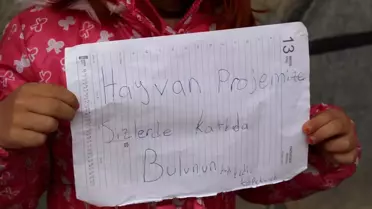 13
Hayvan Projemize
Sizlerde Katıda
Bulunun